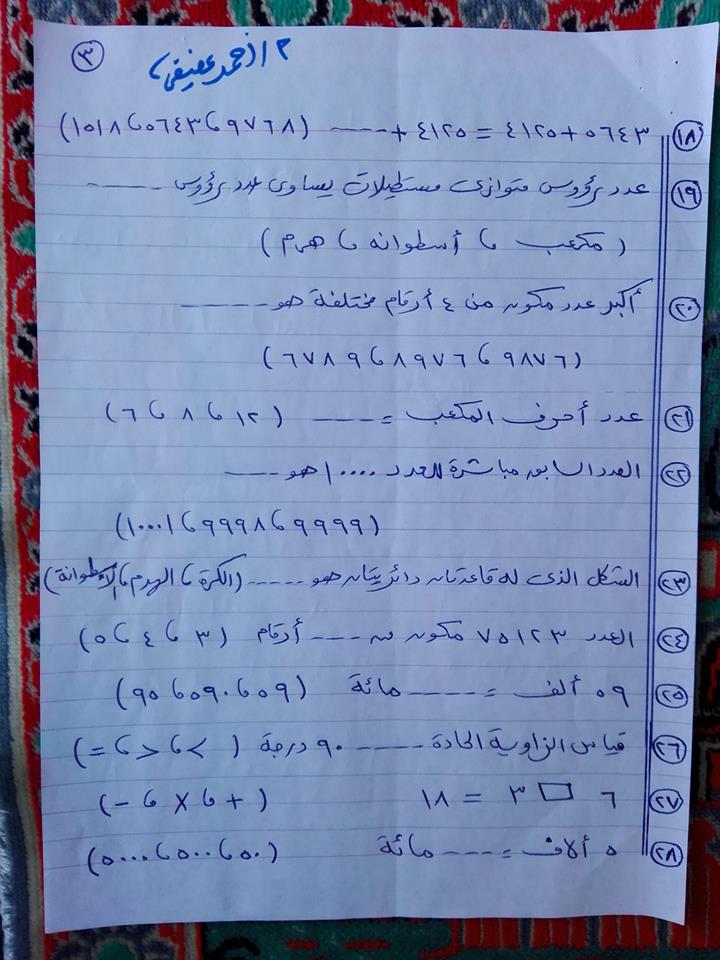 ٣
أ/ أحمد عفيفى
١٨ ٥٦٤٣ + ٤١٢٥ = ٤١٢٥ + ---- (٩٧٦٨ ، ٥٦٤٣ ، ١٥١٨)
١٩ عدد رؤوس متوازى مستطيلات يساوى عدد رؤوس -----
(مكعب ، أسطوانه ، هرم)
٢٠ أكبر عدد مكون من ٤ أرقام مختلفة هو -----
(٩٨٧٦ ، ٨٩٧٦ ، ٦٧٨٩)
٢١ عدد أحرف المكعب = ---- (١٢ ، ٨ ، ٦)
٢٢ العدد السابق مباشرة للعدد ١٠٠٠٠ هو ----
(٩٩٩٩ ، ٩٩٩٨ ، ١٠٠٠١)
٢٣ الشكل الذى له قاعدتان دائريتان هو ----- (الكرة ، الهرم ، الاسطوانة)
٢٤ العدد ٧٥١٢٣ مكون من ---- أرقام (٣ ، ٤ ، ٥)
٢٥ ٥٩ ألف = ----- مائة (٥٩ ، ٥٩٠ ، ٩٥)
٢٦ قياس الزاوية الحادة ----- ٩٠ درجة (< ، > ، =)
٢٧ ٦ □ ٣ = ١٨ (+ ، × ، -)
٢٨ ٥ ألاف = ----- مائة (٥٠ ، ٥٠٠ ، ٥٠٠٠)